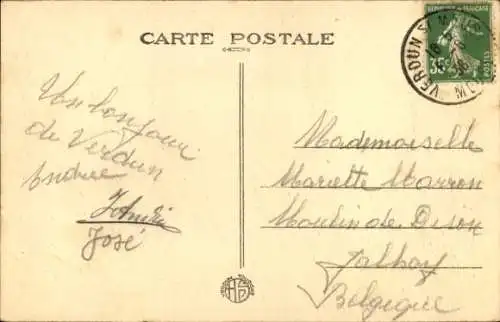 CARTE POSTALE
REPUBLIQUE FRANCAISE
35c
POSTES
VERDUN S. MEUSE
Un bonjour
de Verdun
Andree
José
Mademoiselle
Mariette Marron
Moulin de Dison
Jalhay
Belgique